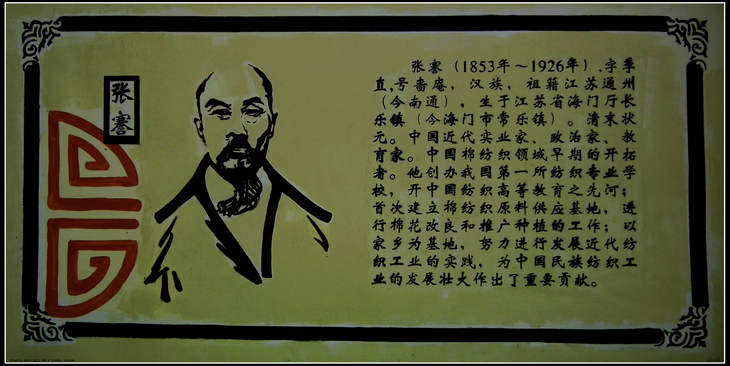 张謇
张謇（1853年～1926年）,字季
直,号啬庵，汉族，祖籍江苏通州
（今南通），生于江苏省海门厅长
乐镇（今海门市常乐镇）。清末状
元。中国近代实业家、政治家、教
育家。中国棉纺织领域早期的开拓
者。他创办我国第一所纺织专业学
校，开中国纺织高等教育之先河；
首次建立棉纺织原料供应基地，进
行棉花改良和推广种植的工作；以
家乡为基地，努力进行发展近代纺
织工业的实践，为中国民族纺织工
业的发展壮大作出了重要贡献。